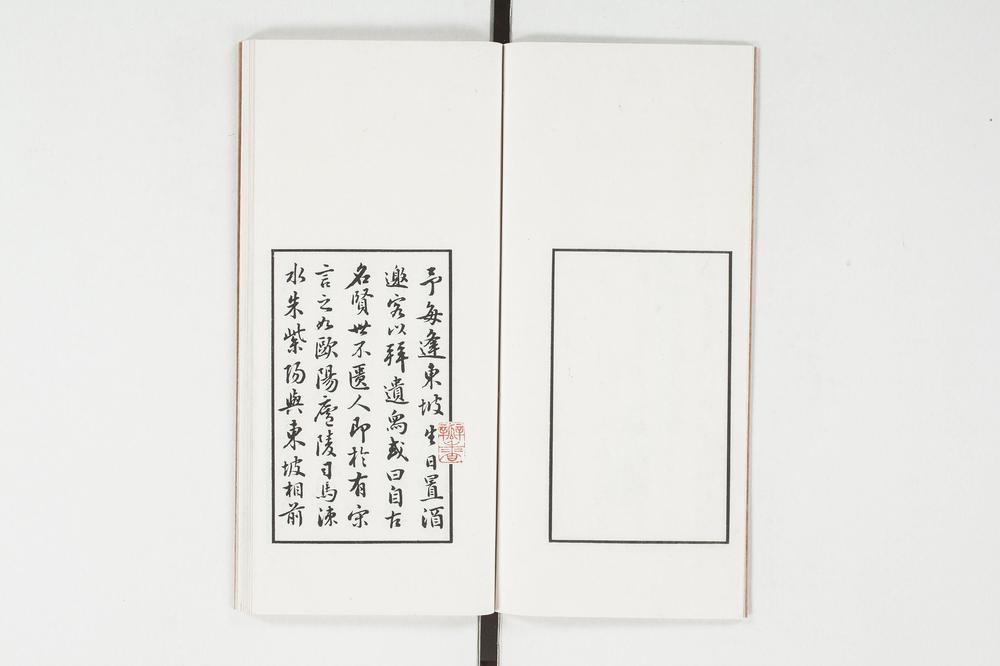 予每逢東坡生日置酒
邀客以拜遺爲或曰自古
名賢世不匱人即於有宋
言之如歐陽廬陵司馬涑
水朱紫陽與東坡相前